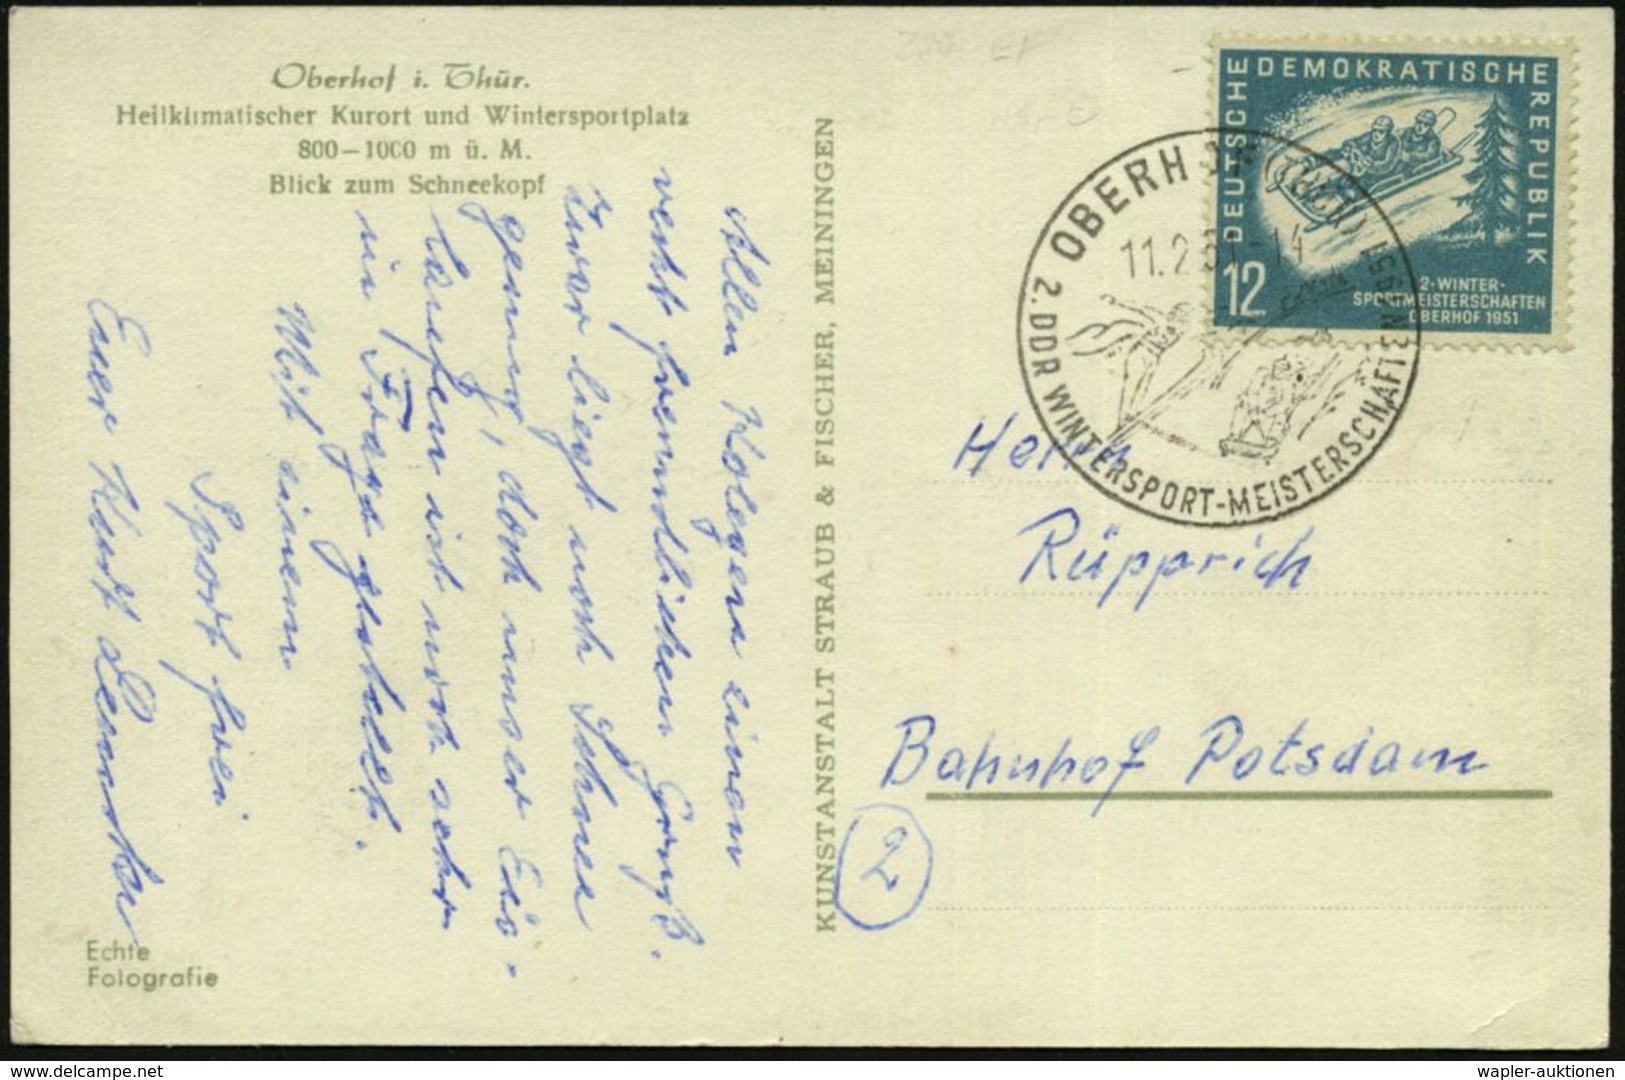 Oberhof i. Thür.
Heilklimatischer Kurort und Wintersportplatz
800–1000 m ü. M.
Blick zum Schneekopf
Allen Kolegen einen
recht freundlichen Gruß.
Zwar liegt noch Schnee
genug, doch unser Eis-
laufen ist noch sehr
in Frage gestellt.
Mit einem
Sport frei
Euer Kurt
Echte
Fotografie
KUNSTANSTALT STRAUB & FISCHER, MEININGEN
DEUTSCHE DEMOKRATISCHE REPUBLIK
12
2. WINTER-
SPORTMEISTERSCHAFTEN
OBERHOF 1951
OBERHOF (THÜR.)
11.2.51-14
2. DDR WINTERSPORT-MEISTERSCHAFTEN 1951
Herrn
Rüpprich
Bahnhof Potsdam
2
wapler-auktionen.de
wapler-auktionen